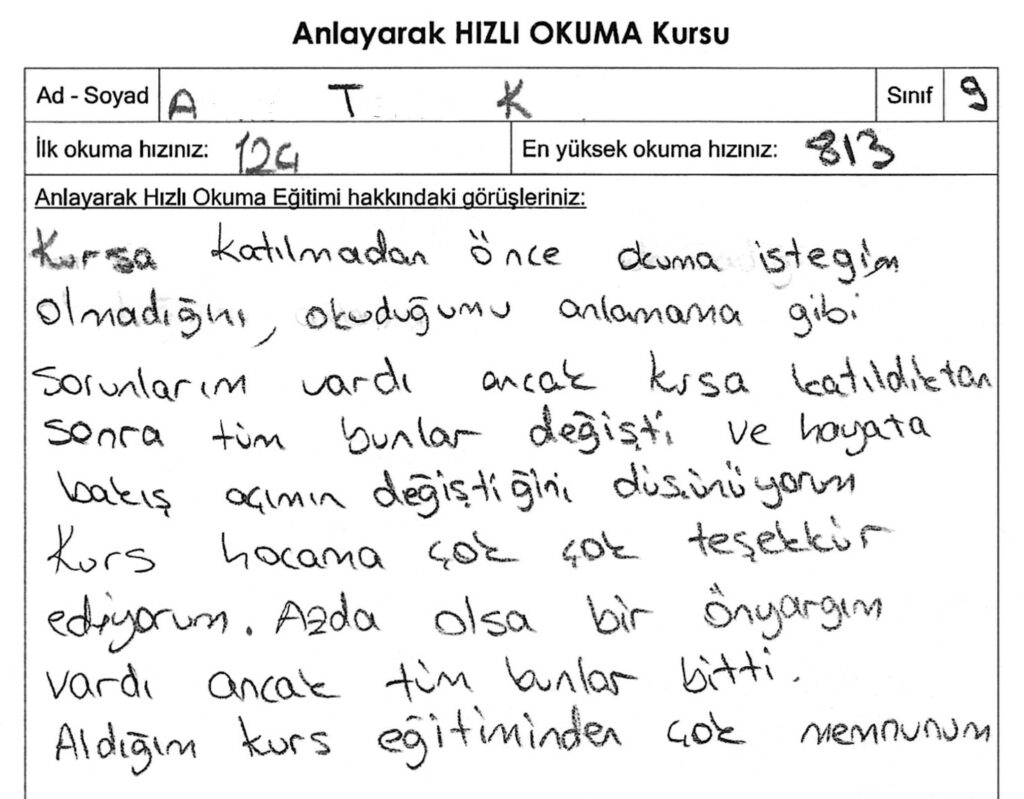 Anlayarak HIZLI OKUMA Kursu
Ad - Soyad A T K Sınıf 9
İlk okuma hızınız: 124 En yüksek okuma hızınız: 813
Anlayarak Hızlı Okuma Eğitimi hakkındaki görüşleriniz:
Kursa katılmadan önce okuma istegim
olmadığını, okuduğumu anlamama gibi
sorunlarım vardı ancak kursa katıldıktan
sonra tüm bunlar değişti ve hayata
bakış açımın değiştiğini düşünüyorum
Kurs hocama çok çok teşekkür
ediyorum. Azda olsa bir önyargım
vardı ancak tüm bunlar bitti.
Aldığım kurs eğitiminden çok memnunum